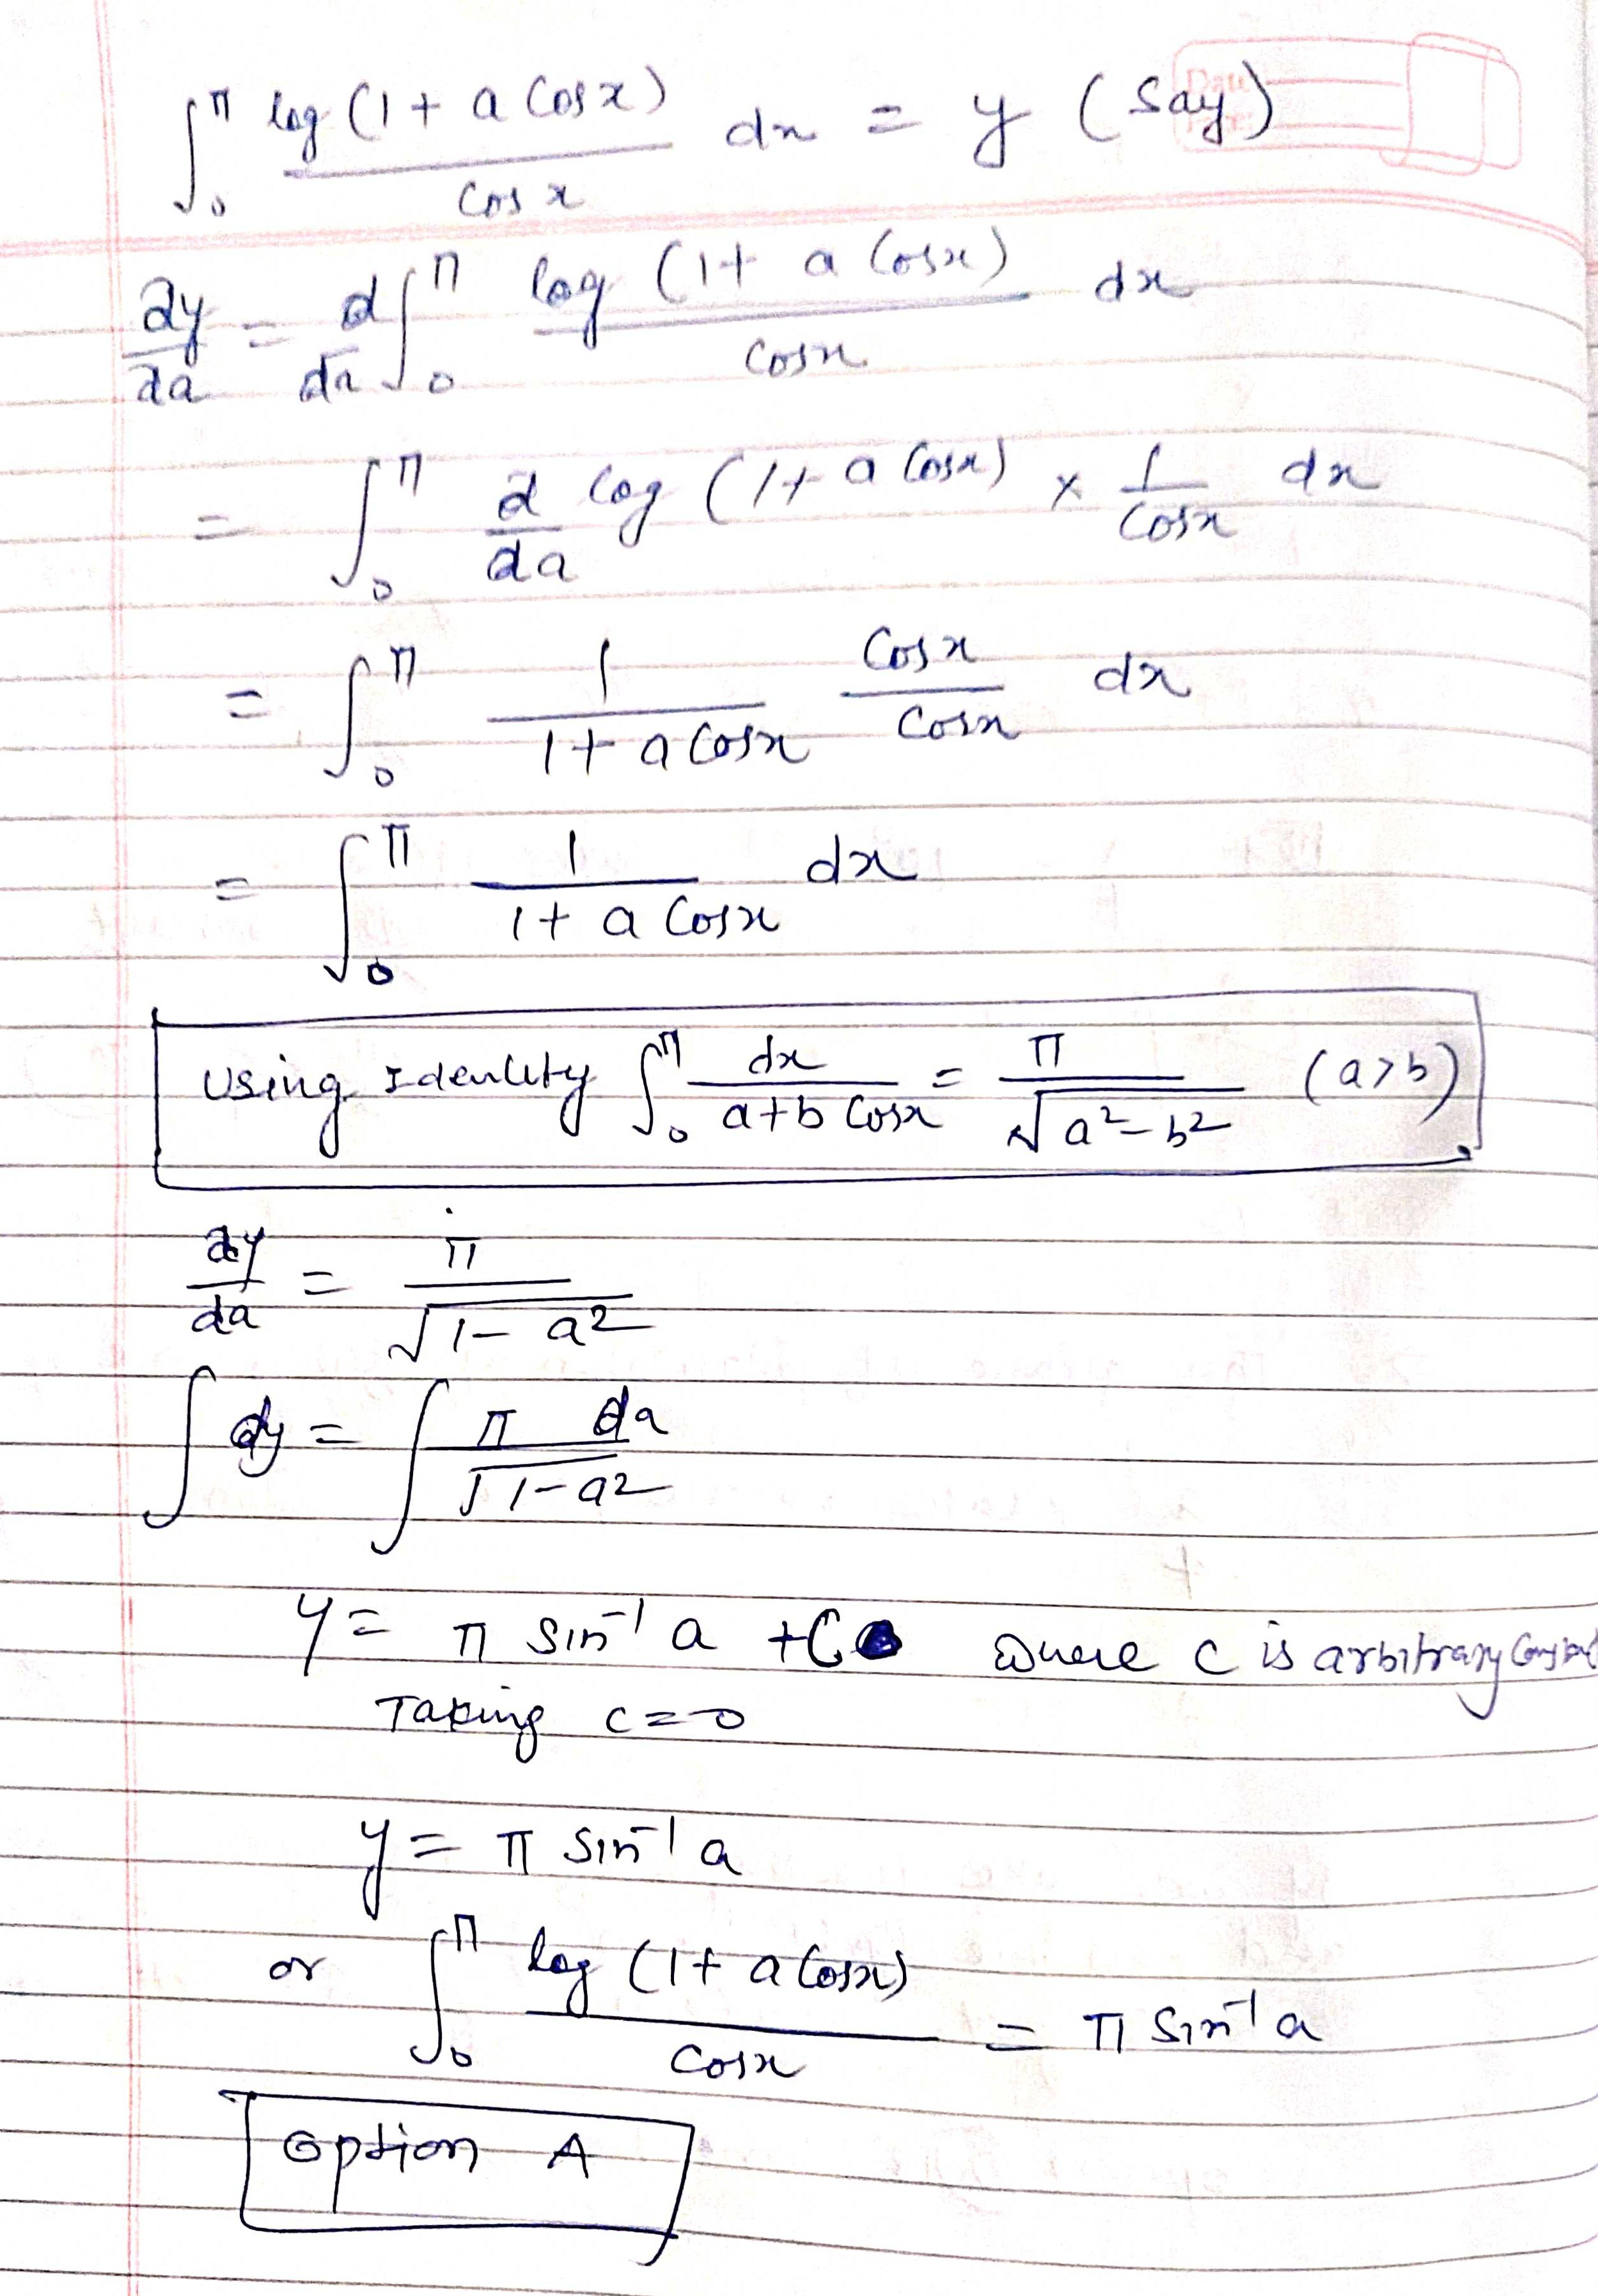 ∫₀^π log (1 + a cos x) / cos x dx = y (say)
dy/da = d/da ∫₀^π log (1 + a cosx) / cosx dx
= ∫₀^π d/da log (1 + a cosx) × 1/cosx dx
= ∫₀^π 1/(1 + a cosx) cosx/cosx dx
= ∫₀^π 1/(1 + a cosx) dx
Using Identity ∫₀^π dx/(a+b cosx) = π/√(a²-b²) (a>b)
dy/da = π/√(1-a²)
∫ dy = ∫ π da/√(1-a²)
y = π sin⁻¹ a + C where c is arbitrary constant
Taking c=0
y = π sin⁻¹ a
or ∫₀^π log (1 + a cosx) / cosx = π sin⁻¹ a
Option A